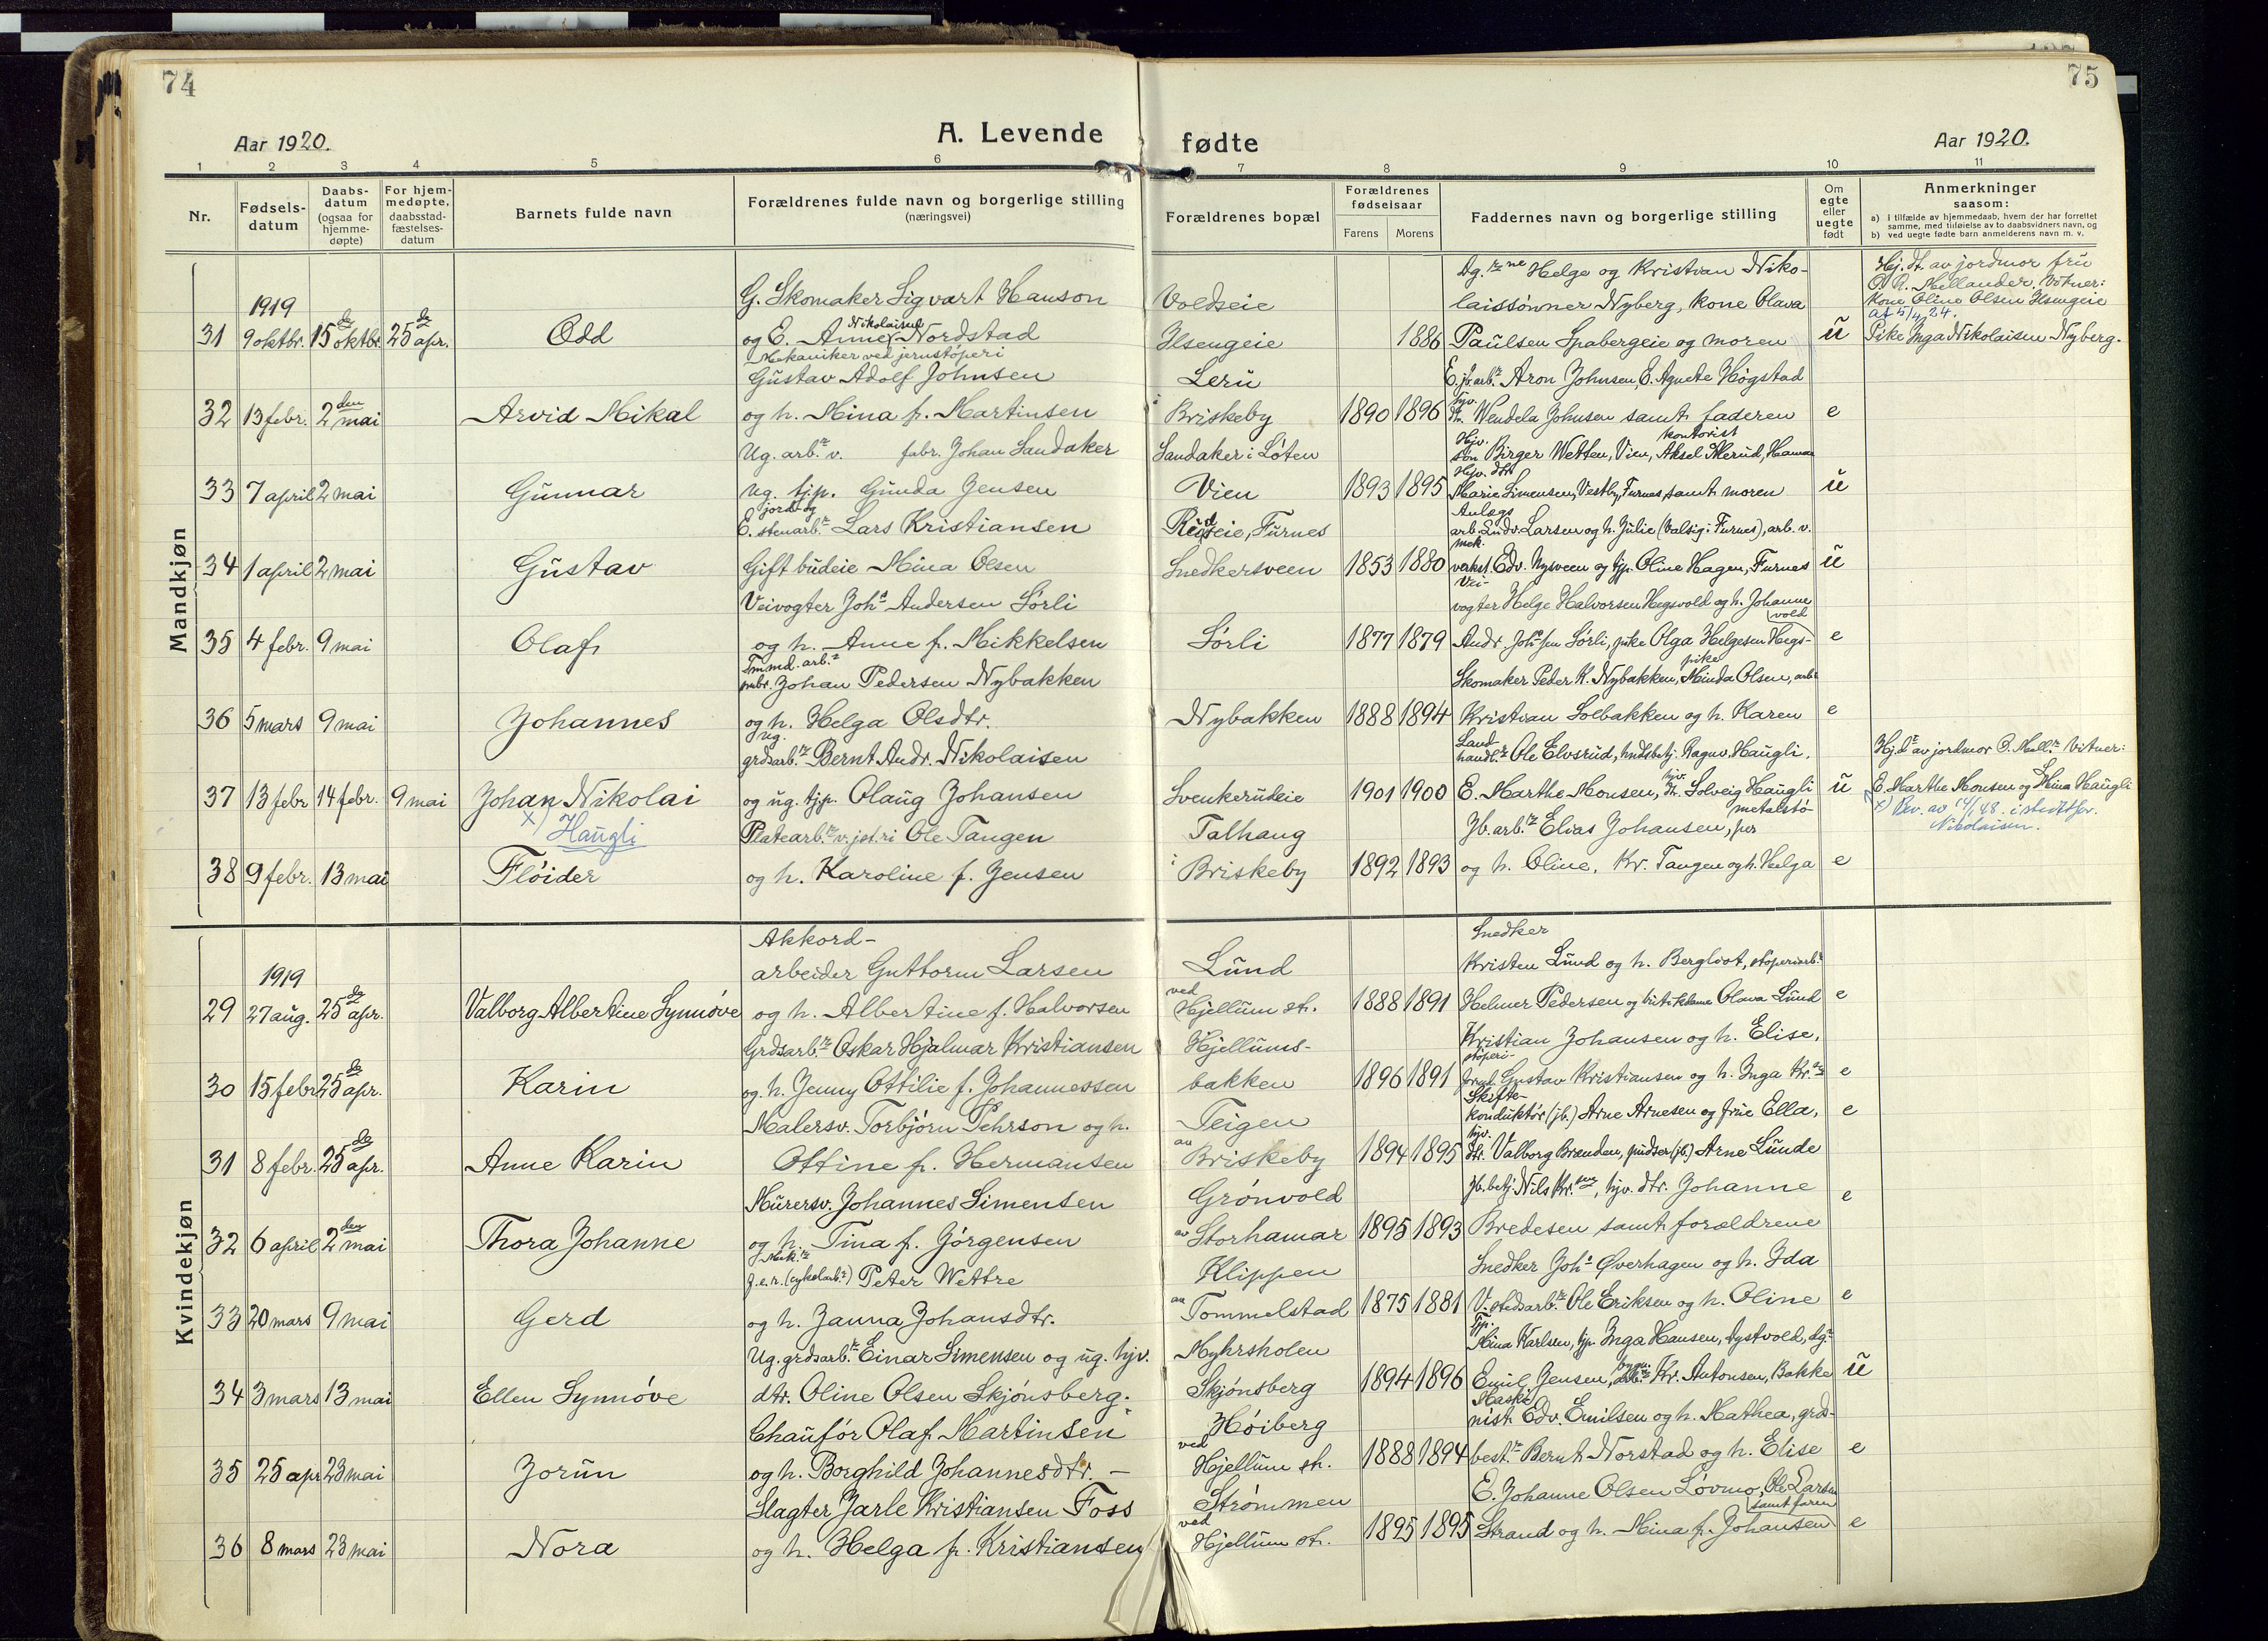 74
75
Aar 1920.
A. Levende fødte
Aar 1920.
1 2 3 4 5 6 7 8 9 10 11
Nr.
Fødsels-
datum
Daabs-
datum
(ogsaa for
hjemme-
døpte)
For hjem-
medøpte,
daabsstad-
fæstelses-
datum
Barnets fulde navn
Forældrenes fulde navn og borgerlige stilling
(næringsvei)
Forældrenes bopæl
Forældrenes
fødselsaar
Farens Morens
Faddernes navn og borgerlige stilling
Om
egte
eller
uegte
født
Anmerkninger
saasom:
a) i tilfælde av hjemmedaab, hvem der har forrettet
samme, med tilføielse av to daabsvidners navn, og
b) ved uegte fødte barn anmelderens navn m. v.
Mandkjøn
G. Skomaker Sigvart Hanson Voldseie Dg. Helge og Kristian Niko- Hj. dt. av jordmor fru
1919 laissønner Nyberg, kone Olava Mellander. Vitner:
kone Oline Olsen Ilsengeie
31 9 oktbr. 15 de oktbr. 25 de apr. Odd og E. Anne Nikolaisen Nordstad Ilsengeie 1886 Paulsen Spabergeie og moren ü Pike Inga Nikolaisen Nyberg.
Mekaniker ved jernstøperi
Gustav Adolf Johnsen Lerü E. jb. arb. Aron Johnsen, E. Agnete Høgstad
32 13 febr. 2 den mai Arvid Mikal og h. Mina f. Martinsen i Briskeby 1890 1896 hjv. Wendela Johnsen samt faderen e
Ug. arb. v. fabr. Johan Sandaker Sandaker i Løten Hjv. søn Birger Wetten, Vien, kontorist Aksel Skerud, Hamar
33 7 april 2 mai Gunnar ug. tjp. Gunda Jensen Vien 1893 1895 Hjv. dtr. Marie Simensen, Vestby, Furnes, samt moren ü
E. jord og stenarb. Lars Kristiansen Rudseie, Furnes Anlægs arb. Ludv. Larsen og h. Julie (Valsig i Furnes), arb. v.
34 1 april 2 mai Gustav Gift budeie Mina Olsen Snedkersveen 1853 1880 mek. verkst. Edv. Nysveen og tjp. Oline Hagen, Furnes ü
Veivogter Joh. Andersen Sørli Vei- vogter Helge Halvorsen Hegsvold og h. Johanne
35 4 febr. 9 mai Olaf og h. Anne f. Mikkelsen Sørli 1877 1879 Andr. Johsen Sørli, pike Olga Helgesen Hegs- vold e
Tømmd. arb. Johan Pedersen Nybakken Skomaker Peder K. Nybakken, pike Minda Olsen, arb.
36 5 mars 9 mai Johannes og h. Helga Olsdtr. Nybakken 1888 1894 Kristian Solbakken og h. Karen e
Ug. grdsarb. Bernt Andr. Nikolaisen Land- handl. Ole Elvsrud, hndsbetj. Ragnv. Haugli. Hj. d. av jordmor O. Mell. Vitner:
37 13 febr 14 febr. 9 mai Johan Nikolai og ug. tjp. Olaug Johansen Svenkerudeie 1901 1900 E. Marthe Monsen, hjv. dtr. Solveig Haugli ü E. Marthe Monsen og Mina Haugli
x) Haugli x) Bev. av 14/1 48. i stedetfor.
Nikolaisen.
Platearb. v. jst.ri Ole Tangen Talhaug Jb. arb. Elias Johansen, metalstø- per
38 9 febr. 13 mai Fløider og h. Karoline f. Jensen i Briskeby 1892 1893 og h. Oline, Kr. Tangen og h. Helga e
Kvindekjøn
Akkord- Snedker
1919 arbeider Guttorm Larsen Lund Kristen Lund og h. Bergliot, støperiarb.
29 27 aug. 25 de apr. Valborg Albertine Synnøve og h. Albertine f. Halvorsen ved Hjellum st. 1888 1891 Helmer Pedersen og Olava Lund e
Grdsarb. Oskar Hjalmar Kristiansen Hjellums- Kristian Johansen og h. Elise,
30 15 febr 25 de apr. Karin og h. Jenny Ottilie f. Johannessen bakken 1896 1891 støperi- Gustav Kristiansen og h. Inga Kr. e
Malersv. Torbjørn Pehrson og h. Teigen Skifte- konduktør (jb.) Arne Arnesen og frue Ella, e
31 8 febr. 25 de apr. Anne Karin Ottine f. Hermansen av Briskeby 1894 1895 hjv. dtr. Valborg Brenden, pudser (jb.) Arne Lunde
Murersv. Johannes Simensen Grønvold Jb. betj. Nils Kr.sen, hjv. dtr. Johanne e
32 6 april 2 den mai Thora Johanne og h. Tina f. Jørgensen av Storhamar 1895 1893 Bredesen samt forældrene
Mek. f.e.r. (cykelarb.) Peter Wettre Klippen Snedker Joh. Øverhagen og h. Ida
33 20 mars 9 mai Gerd og h. Janna Johansdtr. av Tommelstad 1875 1881 V. stedsarb. Ole Eriksen og h. Oline e
Ug. grdsarb. Einar Simensen og ug. hjv. Myhrsholen Tjp. Mina Karlsen, tjp. Inga Hansen, Tystvold, dg.
34 3 mars 13 mai Ellen Synnøve dtr. Oline Olsen Skjønsberg. Skjønsberg 1894 1896 Emil Jensen, Kr. Antonsen, Bakke ü
Chaufør Olaf Martinsen Høiberg Maski- nist Edv. Emilsen og h. Mathea, grds-
35 25 apr 23 mai Jorun og h. Borghild Johannesdtr. — ved Hjellum st. 1888 1894 best. Bernt Norstad og h. Elise e
Slagter Jarle Kristiansen Foss Strømmen E. Johanne Olsen Løvmo, Ole Larsen
36 8 mars 23 mai Nora og h. Helga f. Kristiansen ved Hjellum st. 1895 1895 Strand og h. Mina f. Johansen samt faren e